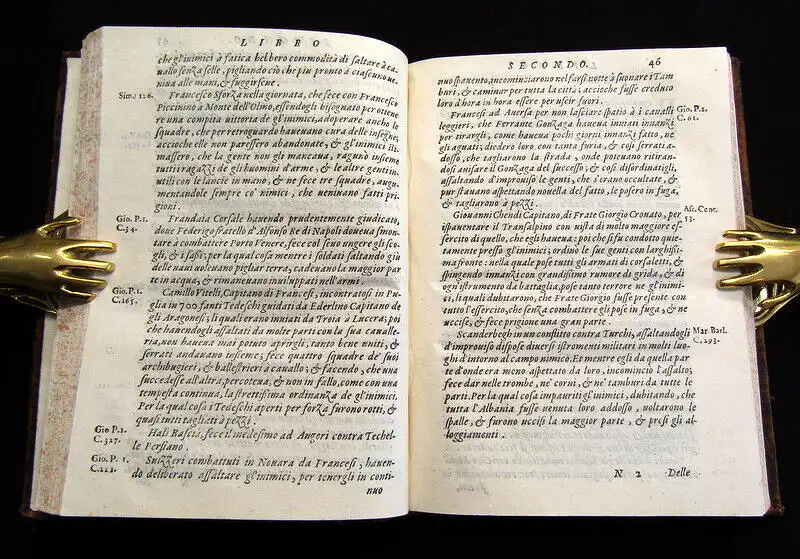 LIBRO
che gl'inimici à fatica hebbero commodità di saltare à ca-
uallo senza selle, pigliando ciò che piu pronto à ciascuno ue-
niua alle mani, & fuggirsene.
Simo 126.
Francesco Sforza nella giornata, che fece con Francesco
Piccinino à Monte dell'Olmo, essendogli bisognato per otene
re una compita uittoria de gl'inimici, adoperare ancho le
squadre, che per retroguardo haueuano cura delle insegne,
accioche elle non paressero abandonate, & gl'inimici sti-
massero, che la gente non gli mancaua, ragunò insieme
tutti i ragazzi de gli huomini d'arme, & le altre genti in-
utili con le lancie in mano, & ne fece tre squadre, aug-
mentandole sempre co' nimici, che ueniuano fatti pri
gioni.
Gio. P. 1.
C. 34.
Frandaia Corsale hauendo prudentemente giudicato,
doue Federigo fratello d'Alfonso Re di Napoli doueua smon-
tare à combattere Porto Venere, fece col seuo ungere gli sco-
gli, & i sassi; per la qual cosa mentre i soldati saltando giù
delle naui uoleuano pigliar terra, cadeuano la maggior par
te in acqua, & rimaneuano inuiluppati nell'armi.
Gio. P. 1.
C. 165.
Camillo Vitelli, Capitano di Francesi, incontratosi in Pu-
glia in 700. fanti Tedeschi guidati da Ederlino Capitano de
gli Aragonesi; li quali erano inuiati da Troia à Lucera; poi
che hauendogli assaltati da molte parti con la sua caualle
ria, non haueua mai potuto aprirgli, tanto bene uniti, &
serrati andauano insieme; fece quattro squadre de' suoi
archibugieri, & balestrieri à cauallo; & facendo, che una
succedesse all'altra, percoteua, & non in fallo, come con una
tempesta continua, la strettissima ordinanza de gl'inimici.
Per la qual cosa i Tedeschi aperti per forza furono rotti, &
quasi tutti tagliati à pezzi.
Gio P. 1.
C. 327.
Hali Bascia, fece il medesimo ad Angori contra Techel-
le Persiano.
Gio. P. 1.
C. 222.
Suizzeri combattuti in Nouara da Francesi, hauen-
do deliberato assaltare gl'inimici, per tenergli in conti-
nuo
SECONDO. 46
nuo spauento, incominciarono nel farsi notte à suonare i Tam
buri, & caminar per tutta la città; accioche fusse creduto
loro d'hora in hora essere per uscir fuori.
Gio. P. 2.
C. 61.
Francesi ad Auersa per non lasciare spatio à i caualli
leggieri, che Ferrante Gonzaga haueua inuiati innanzi
per tirargli, come haueua pochi giorni innanzi fatto, ne
gli aguati; diedero loro con tanta furia, & cosi serrati a-
dosso, che tagliarono la strada, onde poteuano ritiran-
dosi auisare il Gonzaga del successo, & cosi disordinatigli,
assaltando d'improuiso le genti, che s'erano occultate, &
pur stauano aspettando nouella del fatto, le posero in fuga,
& tagliarono à pezzi.
Asc. Cene.
53.
Giouanni Chendi Capitano, di Frate Giorgio Crouato, per
ispauentare il Transalpino con uista di molto maggiore es-
sercito di quello, che egli haueua: poi che si fu condotto quie-
tamente presso gl'inimici; ordinò le sue genti con larghis-
ma fronte: nella quale pose tutti gli armati di corsaletti, &
spingendo innanzi con grandissimo rumore di grida, & di
ogn'istrumento da battaglia, pose tanto terrore ne gl'inimi
ci, li quali dubitarono, che Frate Giorgio fusse presente con
tutto l'essercito, che senza combattere gli pose in fuga, & ne
uccise, & fece prigione una gran parte.
Mar. Barl.
C. 293.
Scanderbegh in un conflitto contra Turchi, assaltandogli
d'improuiso dispose diuersi istromenti militari in molti luo-
ghi d'intorno al campo nimico. Et mentre egli da quella par
te d'onde era meno aspettato da loro, incominciò l'assalto;
fece dar nelle trombe, ne' corni, & ne' tamburi da tutte le
parti. Per la qual cosa impauriti gl'inimici, dubitando, che
tutta l'Albania fusse uenuta loro addosso, uoltarono le
spalle, & furono uccisi la maggior parte, & presi gli al-
loggiamenti.
N 2 Delle